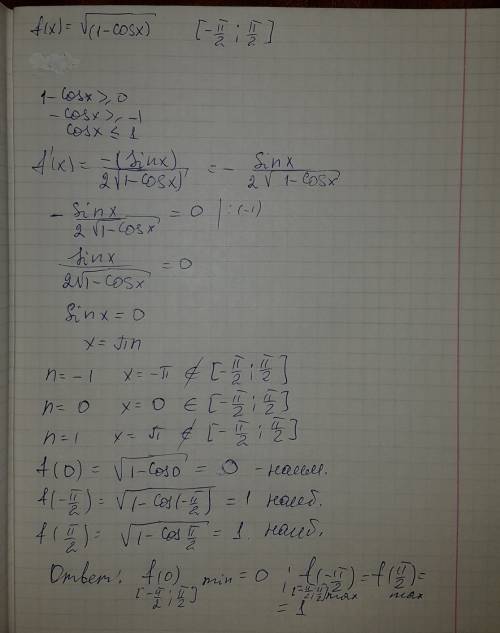 f(x) = √(1-cosx) [-π/2 ; π/2]
1-cosx ≥ 0
-cosx ≥ -1
cosx ≤ 1
f'(x) = -(sinx)/2√(1-cosx) = - sinx/2√(1-cosx)
- sinx/2√(1-cosx) = 0 | :(-1)
sinx/2√(1-cosx) = 0
sinx = 0
x = πn
n = -1 x = -π ∉ [-π/2 ; π/2]
n = 0 x = 0 ∈ [-π/2 ; π/2]
n = 1 x = π ∉ [-π/2 ; π/2]
f(0) = √(1-cos0) = 0 - наим.
f(-π/2) = √(1-cos(-π/2)) = 1 наиб.
f(π/2) = √(1-cos π/2) = 1. наиб.
Ответ: f(0) min [-π/2 ; π/2] = 0 ; f(-π/2) [-π/2 ; π/2] max = f(π/2) max =
= 1